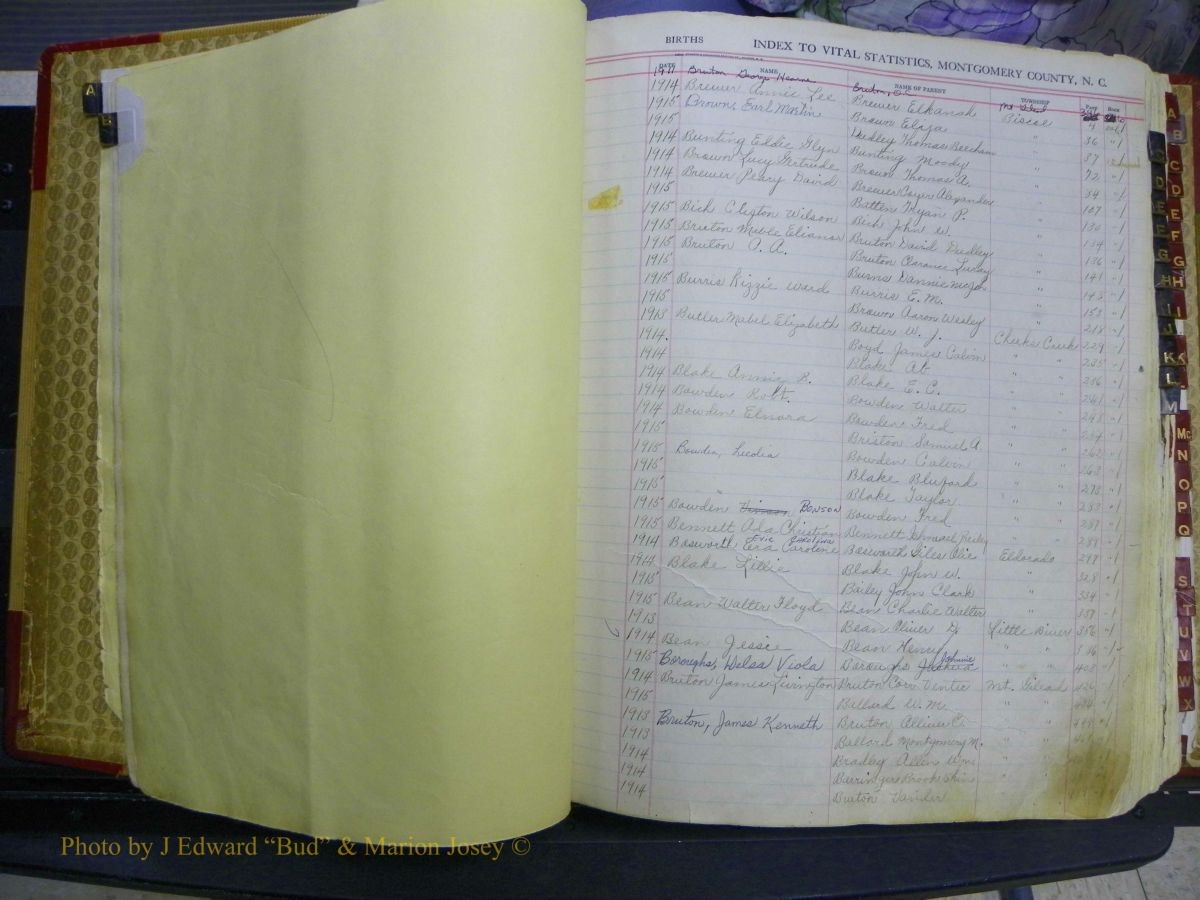 BIRTHS INDEX TO VITAL STATISTICS, MONTGOMERY COUNTY, N. C.
DATE NAME NAME OF PARENT TOWNSHIP PAGE BOOK
1911 Bruton George Hearne Bruton, Mt Gilead
1914 Brewer Annie Lee Brewer Elkanah Biscoe 4
1915 Brown, Earl Martin Brown Eliza " 36 " 1
1915 Dudley Thomas Beecham " 37
1914 Bunting Eddie Glyn Bunting Moody " 72 " 1
1914 Brown Lucy Gertrude Brown Thomas A. " 94 " 1
1914 Brewer Peary David Brewer Alexander " 107 " 1
1915 Batten P. " 130 " 1
1915 Bich Clifton Wilson Bich John W. " 134 " 1
1915 Bruton Mable Elianor Bruton David Dudley " 136 " 1
1915 Bruton A. A. Bruton Clarance " 141 " 1
1915 Burns " 145 " 1
1915 Burris Rizzie Ward Burris E. M. " 153 " 1
1915 Brown Aaron Wesley " 218 " 1
1913 Butler Mabel Elizabeth Butler W. J. Cheeks Creek 229 " 1
1914 Boyd James Calvin " " 235 " 1
1914 Blake At " " 236 " 1
1914 Blake Annie R. Blake E. C. " " 241 " 1
1914 Bowden Robt. Bowden Walter " " 248 " 1
1914 Bowden Elnora Bowden Fred " " 254 " 1
1915 Briston Samuel A. " " 262 " 1
1915 Bowden, Luedia Bowden Calvin " " 263 " 1
1915 Blake Bluford " " 273 " 1
1915 Blake Taylor " " 283 " 1
1915 Bowden BENSON Bowden Fred " " 287 " 1
1915 Bennett Ada Christian Bennett " " 289 " 1
1914 Bosworth Era Carotene EVIE CAROLINA Bosworth Giles Olie Eldorado 299 " 1
1914 Blake Lillie Blake John W. " 328 " 1
1915 Bailey John Clark " 334 " 1
1915 Bean Walter Floyd Bean Charlie Walter " 337 " 1
1913 Bean Oliver G. Little River 356 " 1
1914 Bean Jessie Bean Henry " " 386 " 1
1915 Boroughs, Welsa Viola Boroughs Joshua Johnnie " " 408 " 1
1914 Bruton James Livington Bruton Corr Vintie Mt. Gilead 426
1915 Ballard W. M. " "
1913 Bruton, James Kenneth Bruton Alliver C. " "
1913 Ballard Montgomery M. " "
1914 Bradley Allen Wm. " "
1914 Barringer Brook Shin " "
1914 Bruton Vander
A
B
A
B
C
D
E
F
G
H
I
K
Mc
N
O
P
Q
S
T
U
V
W
X
D
E
F
G
H
I
J
K
L
M
Photo by J Edward “Bud” & Marion Josey ©